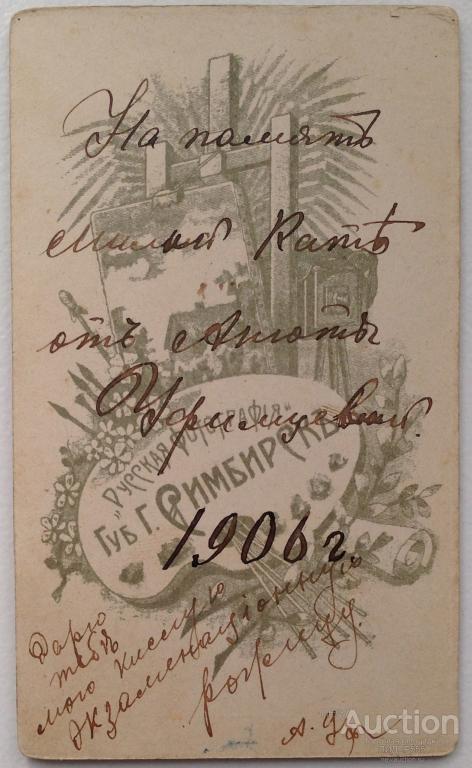 На память
милой Катѣ
отъ Анюты
Уфимцевой.
„Русская Фотографія“
Губ. Г. Симбирскъ
1906 г.
Дарю
тебѣ
мою кислую
экзаменаціонную
рожицу.
А. Уф
Auction